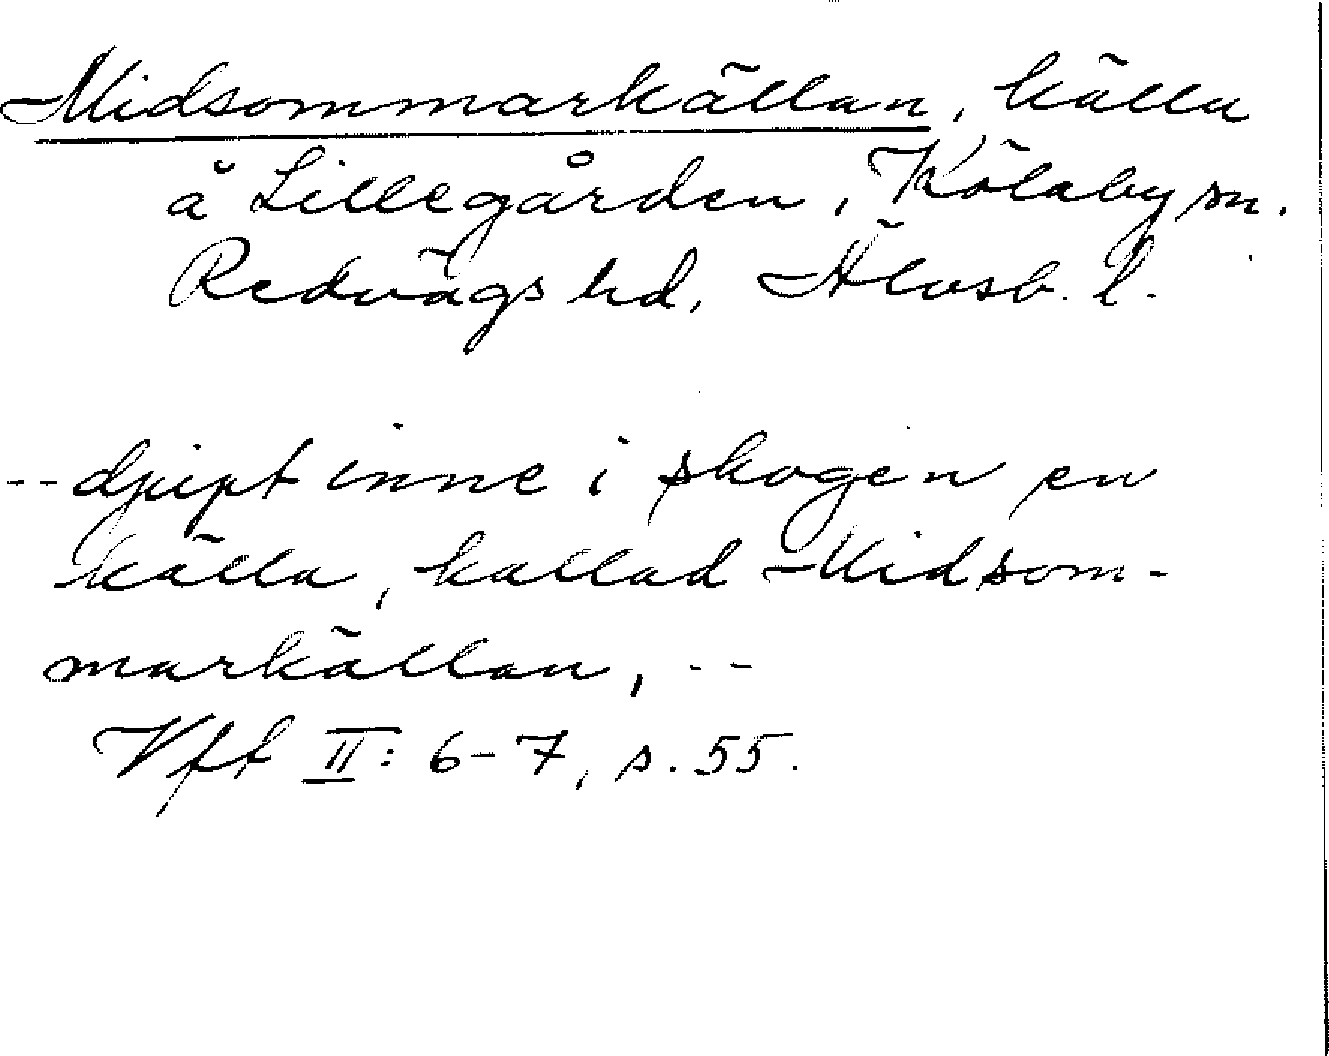 Midsommarkällan, källa
å Lillegården, Kölaby sn.
Redvägs hd, Älvsb. l.
-- djupt inne i skogen en
källa, kallad Midsom-
markällan, --
Vft II: 6-7, s. 55.